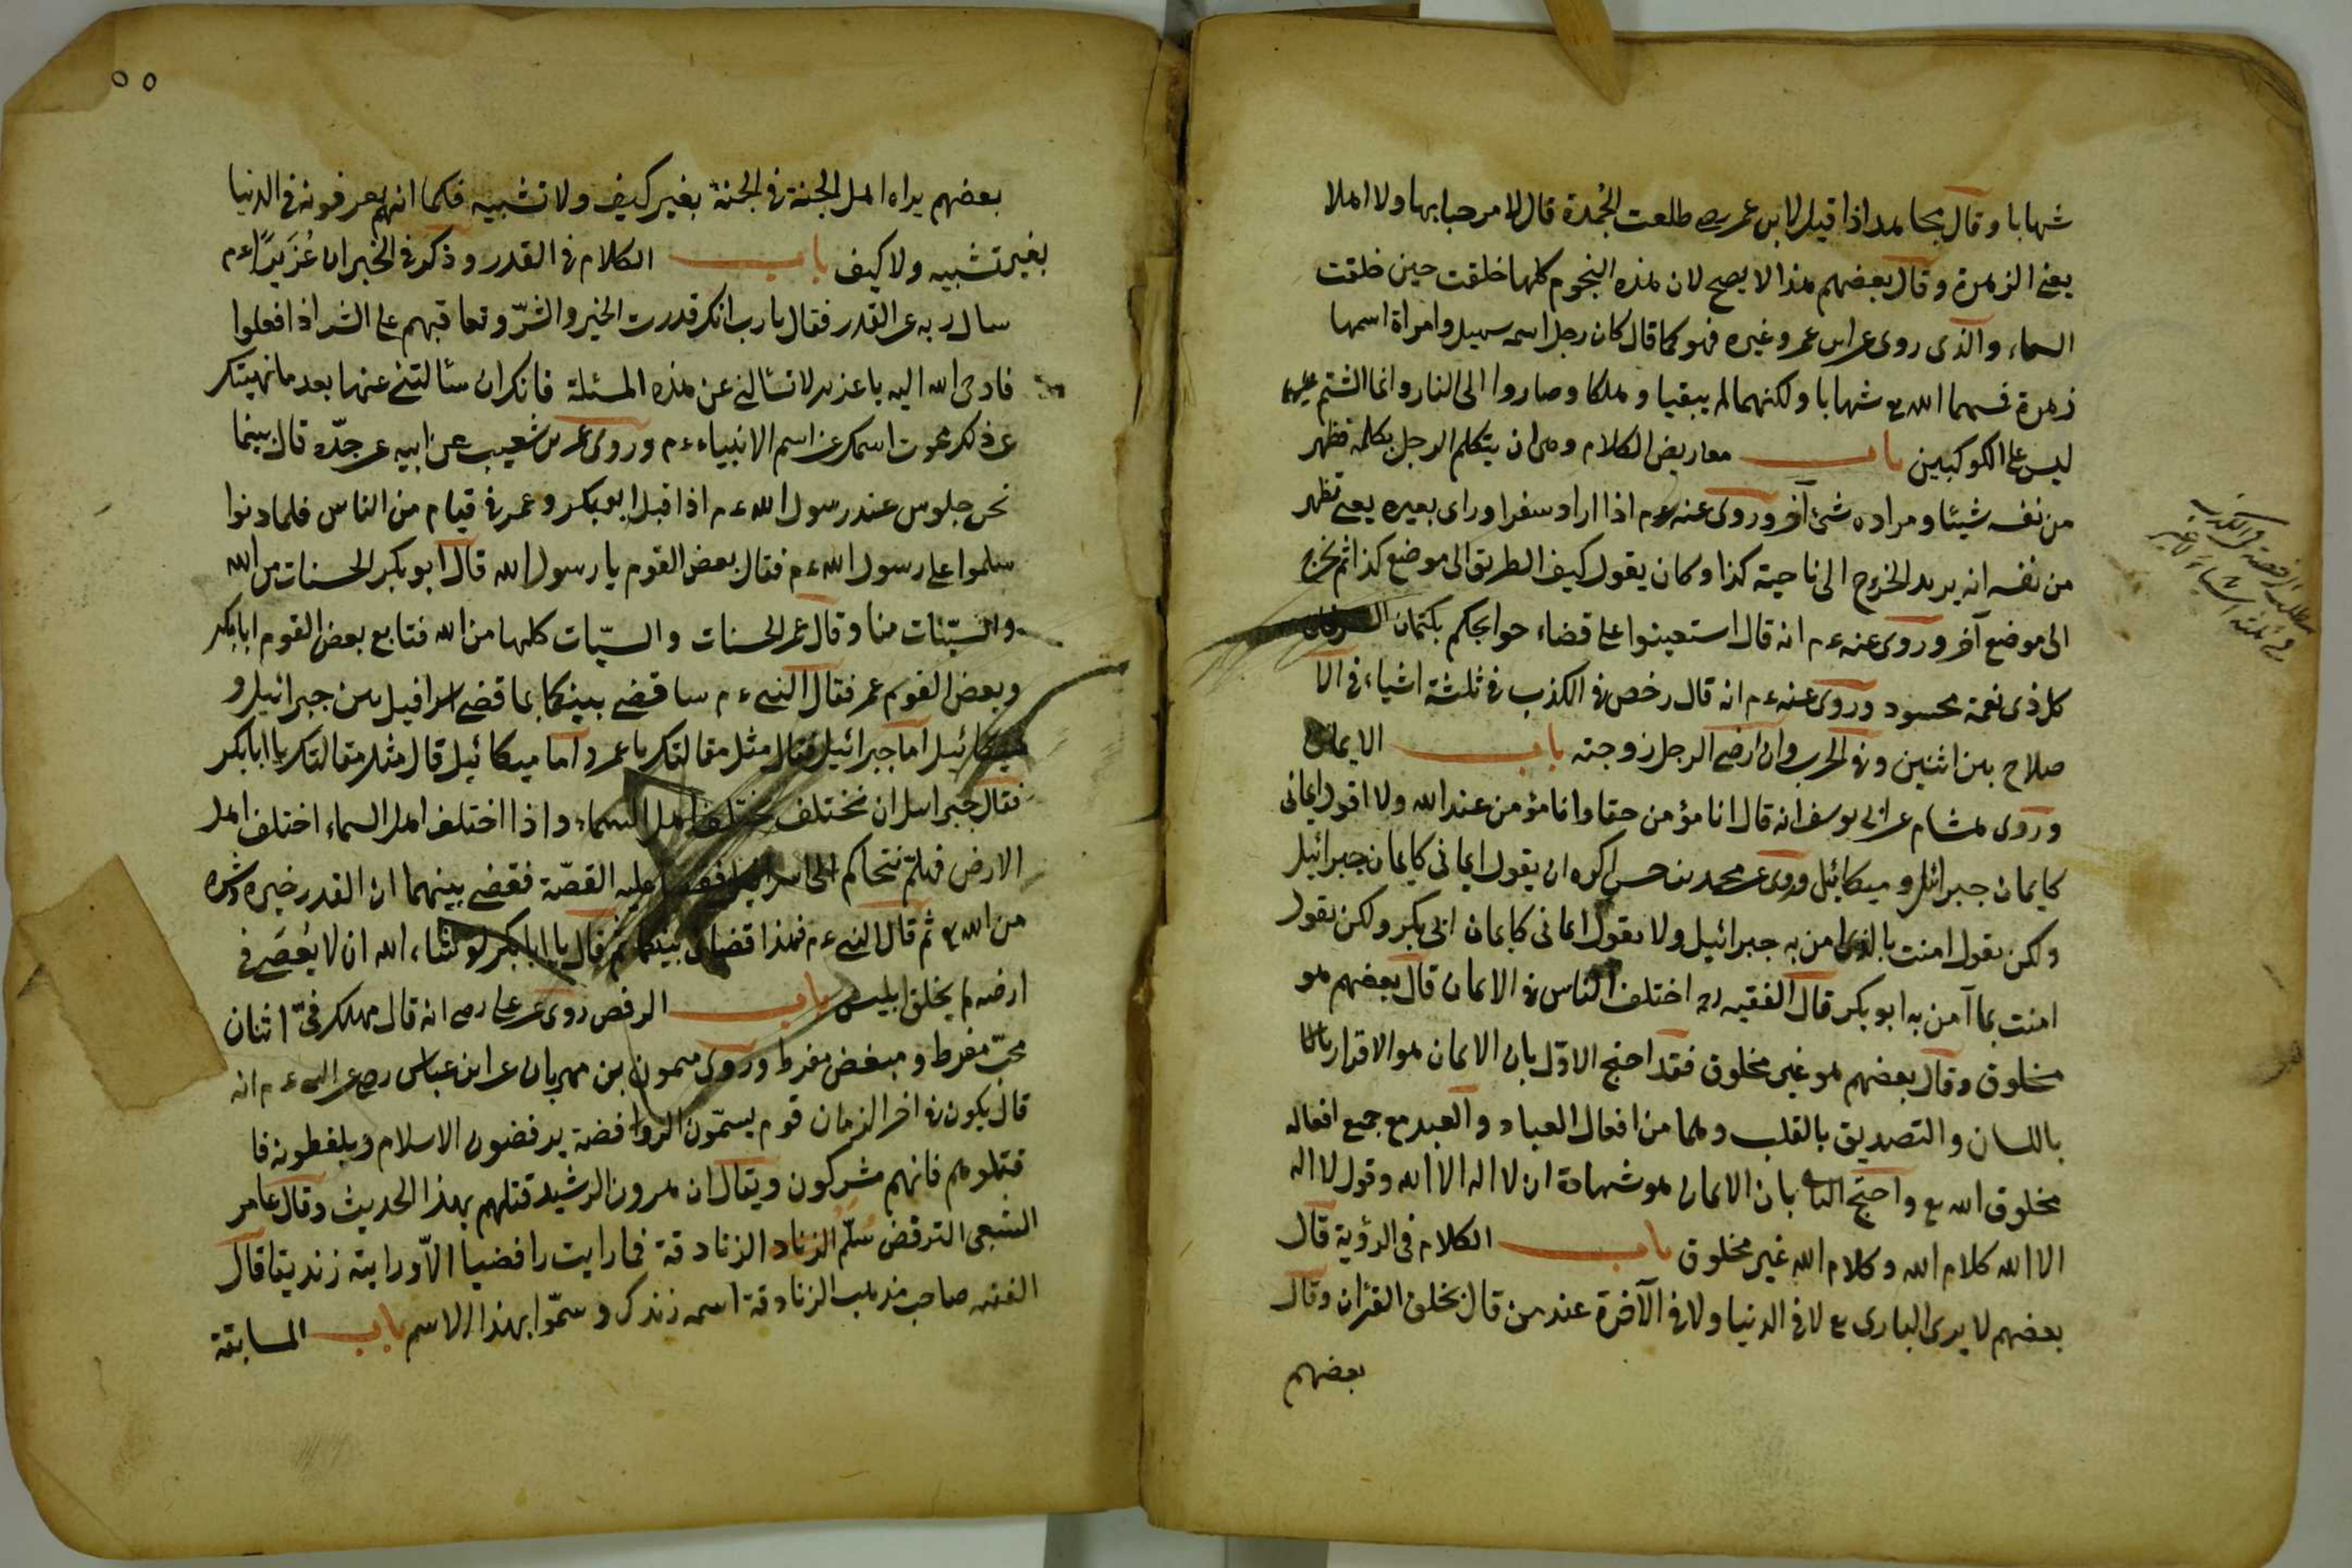 شهابا وقال مجاهد اذا قيل لابن عمر رضه طلعت الحُمرة قال لا مرحبا بها ولا اهلا
يعني الزهرة وقال بعضهم هذا لا يصح لان هذه النجوم كلها خلقت حين خلقت
السماء والذى روى عن ابن عمر وغيره فهو كما قال كان رجل اسمه سهيل وامراة اسمها
زهرة فمسخهما الله تع شهابا ولكنهما لم يبقيا وهلكا وصاروا الى النار وانما الشتم عليهما
ليس على الكوكبين باب معاريض الكلام وهى ان يتكلم الرجل بكلمة تظهر
من نفسه شيئا ومراده شئ آخر وروى عنه ءم اذا اراد سفرا ورى بغيره يعنى تظهر
من نفسه انه يريد الخروج الى ناحية كذا وكان يقول كيف الطريق الى موضع كذا ثم يخرج
الى موضع آخر وروى عنه ءم انه قال استعينوا على قضاء حوايجكم بكتمان
كل ذى نعمة محسود وروى عنه ءم انه قال رخص فى الكذب فى ثلثة اشياء فى الا
صلاح بين اثنين وفى الحرب وان ارضى الرجل زوجته باب الايمان
وروى هشام عن ابى يوسف انه قال انا مؤمن حقا وانا مؤمن عند الله ولا اقول ايمانى
كايمان جبرائل وميكائيل وروى عن محمد بن حسن اكره ان يقول ايمانى كايمان جبرائيل
ولكن يقول امنت بالذى امن به جبرائيل ولا يقول ايمانى كايمان ابى بكر ولكن يقول
امنت بما آمن به ابو بكر قال الفقيه ره اختلف الناس فى الايمان قال بعضهم هو
مخلوق وقال بعضهم هو غير مخلوق فقد احتج الاول بان الايمان هو الاقرار
باللسان والتصديق بالقلب وهما من افعال العباد والعبد مع جميع افعاله
مخلوق الله تع واحتج بان الايمان هو شهادة ان لا اله الا الله وقول لا اله
الا الله كلام الله وكلام الله غير مخلوق باب الكلام فى الرؤية قال
بعضهم لا يرى البارى تع لا فى الدنيا ولا فى الآخرة عند من قال بخلق القرآن وقال
بعضهم
٥٥
بعضهم يراه اهل الجنة فى الجنة بغير كيف ولا تشبيه فكما انهم يعرفونه فى الدنيا
بغير تشبيه ولا كيف باب الكلام فى القدر وذكر فى الخبر ان عُزَيرًا ءم
سال ربه عن القدر فقال يا رب انك قدرت الخير والشرّ وتعاقبهم على الشر اذا فعلوا
فاوحى الله اليه يا عزير لا تسالنى عن هذه المسئلة فانك ان سئالتنى عنها بعد ما نهيتك
عن ذلك محوت اسمك عن اسم الانبياء ءم وروى عمرو بن شعيب عن ابيه عن جدّه قال بينما
نحن جلوس عند رسول الله ءم اذا اقبل ابو بكر وعمر فى قيام من الناس فلما دنوا
سلموا على رسول الله ءم فقال بعض القوم يا رسول الله قال ابو بكر الحسنات من الله
والسيّئات منا وقال عمر الحسنات والسيّات كلها من الله فتابع بعض القوم ابا بكر
وبعض القوم عمر فقال النبى ءم ساقضى بينكما بما قضى اسرافيل بين جبرائيل و
ميكائيل اما جبرائيل فقال مثل مقالتك يا عمر واما ميكائيل قال مثل مقالتك يا ابا بكر
فقال جبرائيل ان نختلف يختلف اهل السماء واذا اختلف اهل السماء اختلف اهل
الارض فهلمّ نتحاكم الى اسرافيل عليه القصّة فقضى بينهما ان القدر خيره وشره
من الله تع ثم قال النبى ءم فهذا قضائى بينكما ثم قال يا ابا بكر لو شاء الله ان لا يُعصَى فى
ارضه لم يخلق ابليس باب الرفض روى عن على رضى انه قال مهلك فىّ اثنان
محبّ مفرط ومبغض مفرط وروى ميمون بن مهران عن ابن عباس رضى عن النبى ءم انه
قال يكون فى اخر الزمان قوم يسمّون الروافضة يرفضون الاسلام ويلفظونه فا
قتلوهم فانهم مشركون ويقال ان هرون الرشيد قتلهم بهذا الحديث وقال عامر
الشعبى الترفض سُلّم الزنادقة فما رايت رافضيا الاّ ورايته زنديقا قال
الفقيه صاحب مذهب الزنادقة اسمه زندك وسمّوا بهذا الاسم باب المسابقة